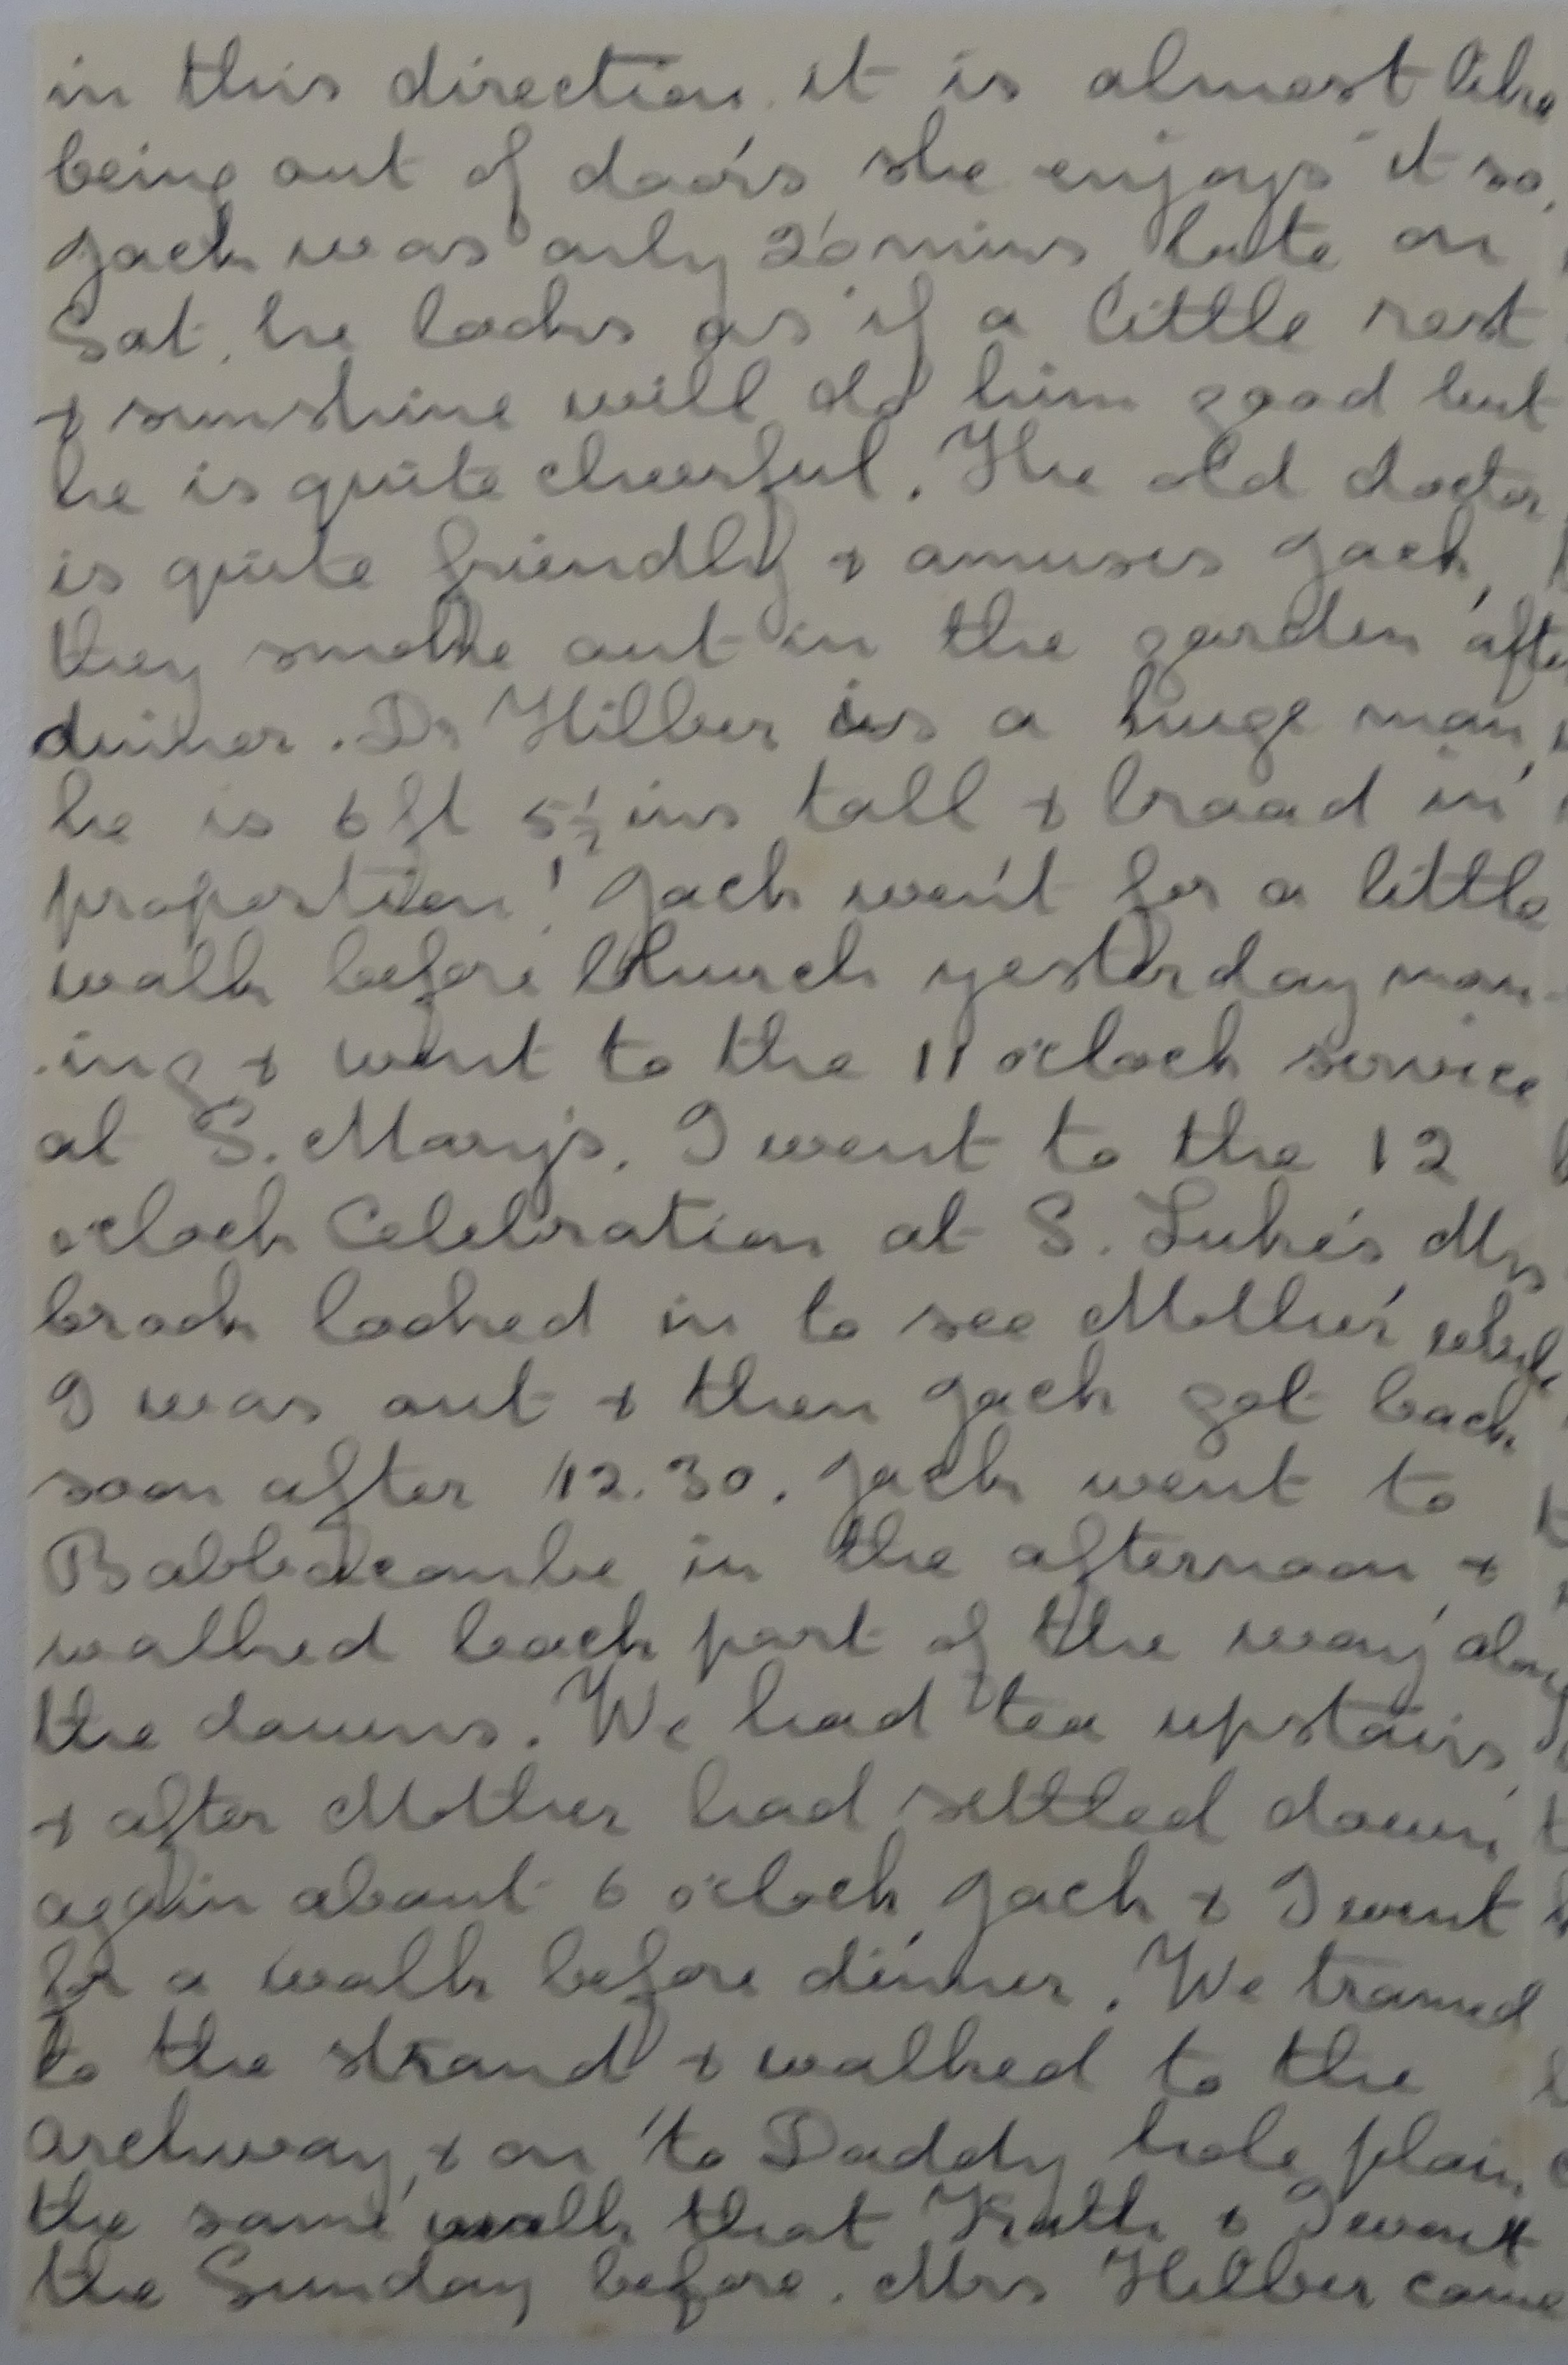 in this direction. it is almost like
being out of doors she enjoys it so,
Jack was only 20 mins late on
Sat. he looks as if a little rest
& sunshine will do him good but
he is quite cheerful. The old doctor
is quite friendly & amuses Jack,
they smoke out in the garden after
dinner. Dr Hilber is a huge man,
he is 6 ft 5½ ins tall & broad in
proportion! Jack went for a little
walk before Church yesterday morn-
-ing & went to the 11 o'clock service
at S. Mary's. I went to the 12
o'clock Celebration at S. Luke's Mrs
brock looked in to see Mother while
I was out & then Jack got back
soon after 12.30. Jack went to
Babbacombe in the afternoon &
walked back part of the way along
the downs. We had tea upstairs,
& after Mother had settled down
again about 6 o'clock Jack & I went
for a walk before dinner. We tramed
to the strand & walked to the
archway, & on to Daddy hole plain,
the same walk that Kath & I went
the Sunday before. Mrs Hilber came